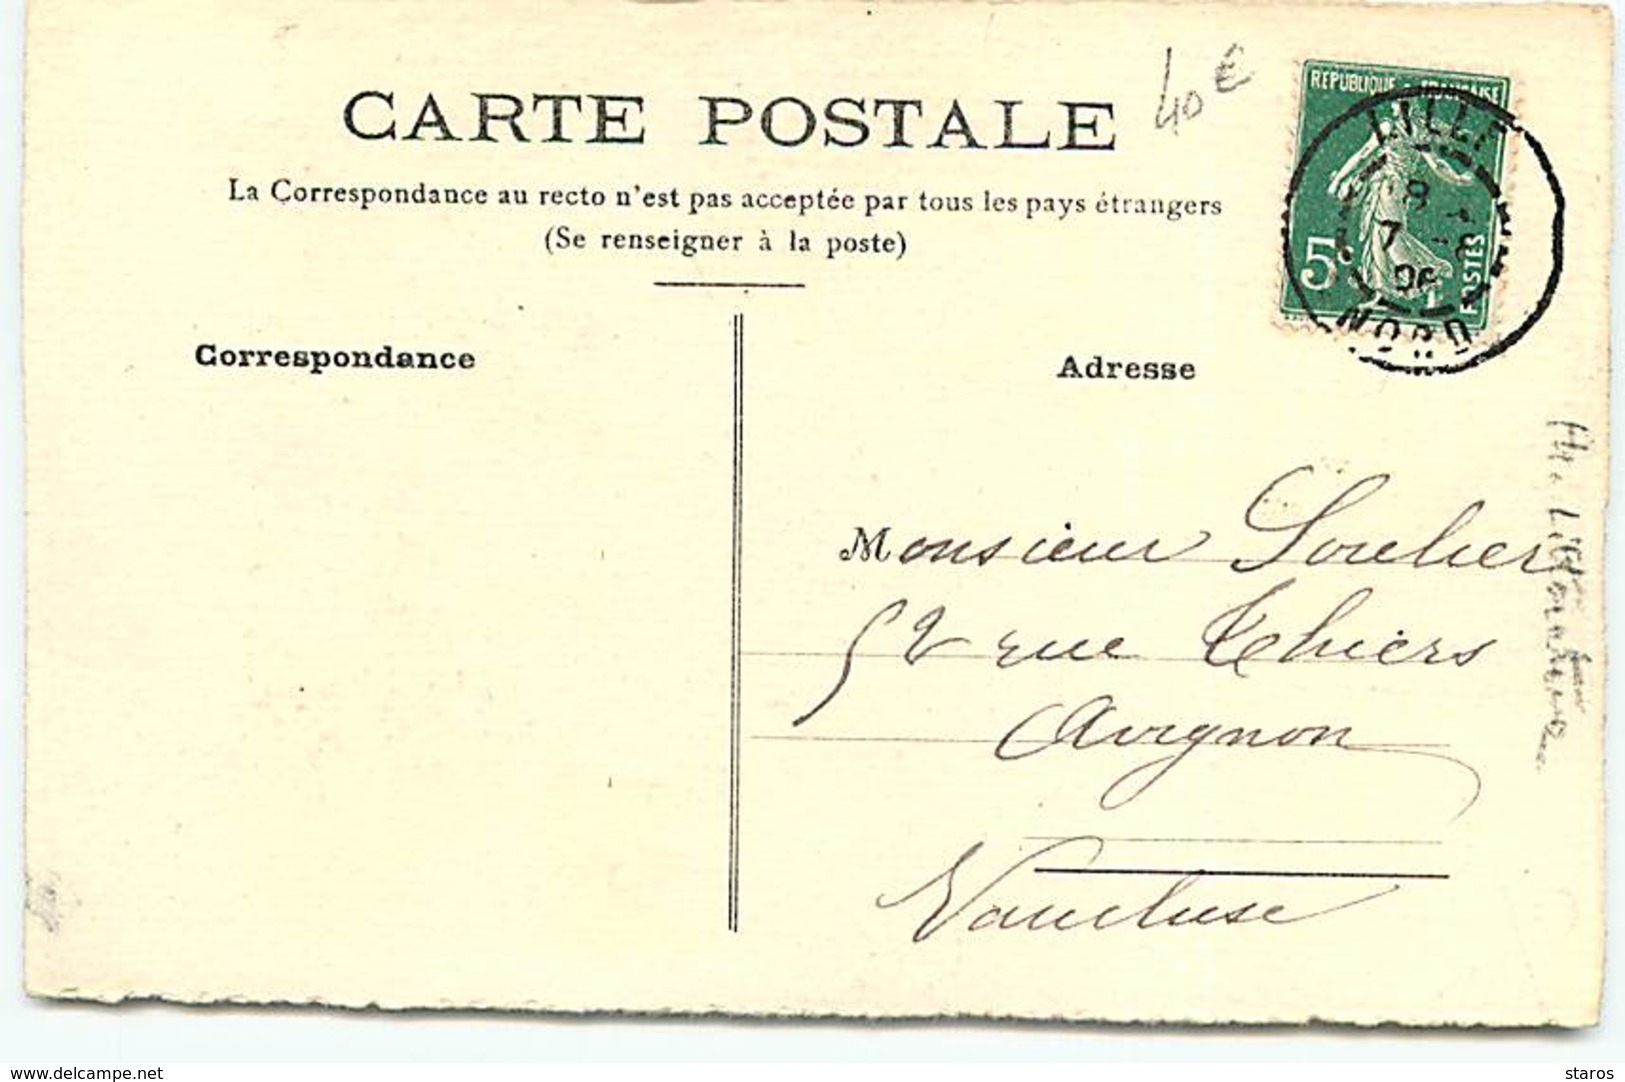 CARTE POSTALE
40 €
La Correspondance au recto n'est pas acceptée par tous les pays étrangers
(Se renseigner à la poste)
REPUBLIQUE FRANCAISE
5c
POSTES
LILLE
NORD
Correspondance
Adresse
Monsieur Soulier
52 rue Thiers
Avignon
Vaucluse
www.delcampe.net
staros